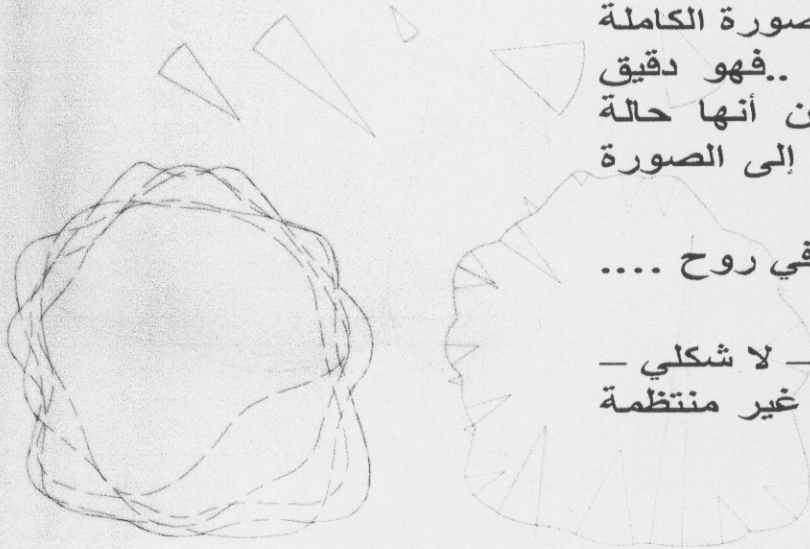 صورة الكاملة
..فهو دقيق
ن أنها حالة
إلى الصورة
في روح ....
– لا شكلي –
غير منتظمة